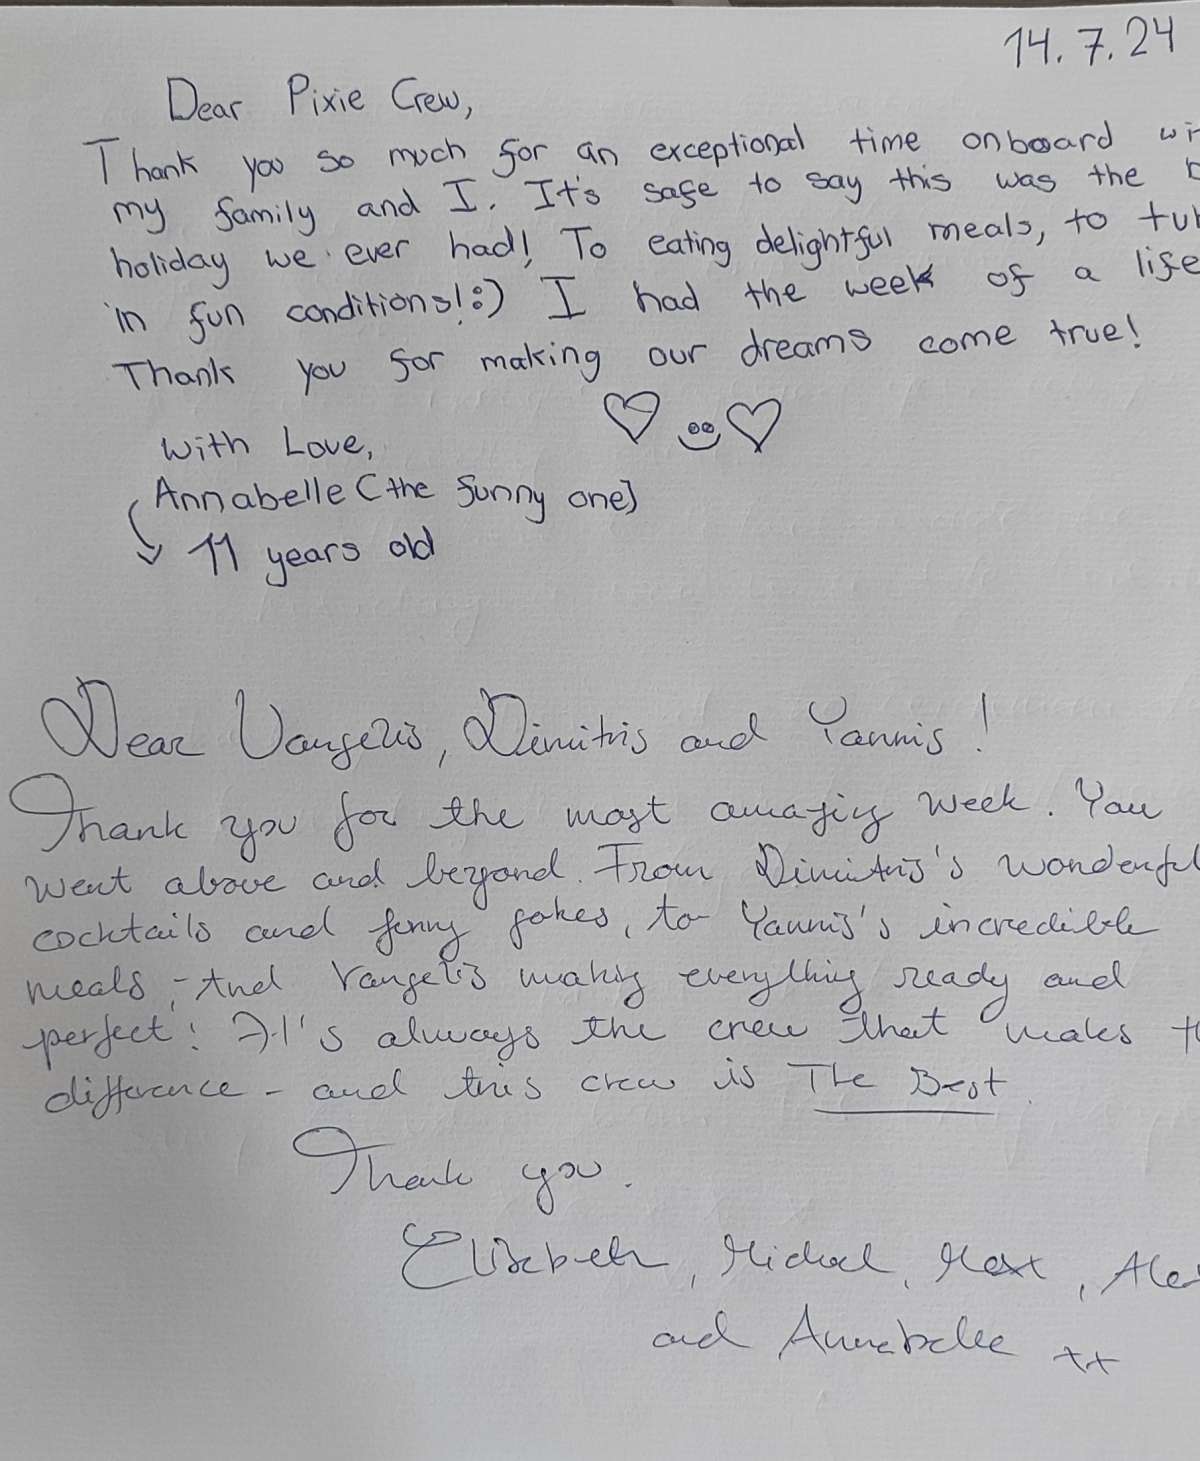 14.7.24
Dear Pixie Crew,
Thank you so much for an exceptional time onboard wi
my family and I. It's safe to say this was the b
holiday we ever had! To eating delightful meals, to tu
in fun conditions!:) I had the week of a life
Thank you for making our dreams come true!
with Love,
Annabelle (the funny one)
11 years old
Dear Vangelis, Dimitris and Yannis!
Thank you for the most amazing week. You
went above and beyond. From Dimitris's wonderful
cocktails and funny jokes, to Yannis's incredible
meals, - And Vangelis making everything ready and
perfect! It's always the crew that makes th
difference - and this crew is The Best.
Thank you.
Elizabeth, Michael, Max, Ale
and Annabelle xx